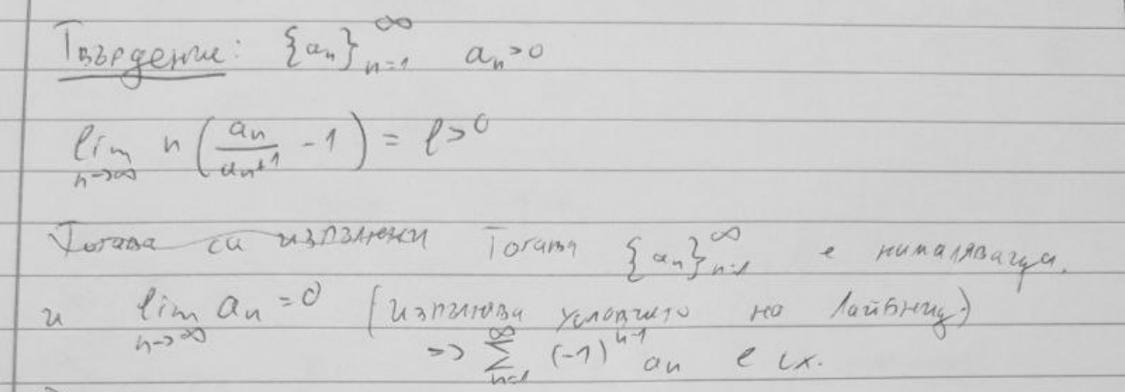 Твърдение: {aₙ}ₙ₌₁^∞ aₙ>0
lim_{n→∞} n (aₙ/aₙ₊₁ - 1) = l>0
Тогава са изпълнени Тогава {aₙ}ₙ₌₁^∞ е намаляваща.
и lim_{n→∞} aₙ = 0 (изпълнява условието на Лайбниц)
=> ∑_{n=1}^∞ (-1)^{n-1} aₙ е сх.